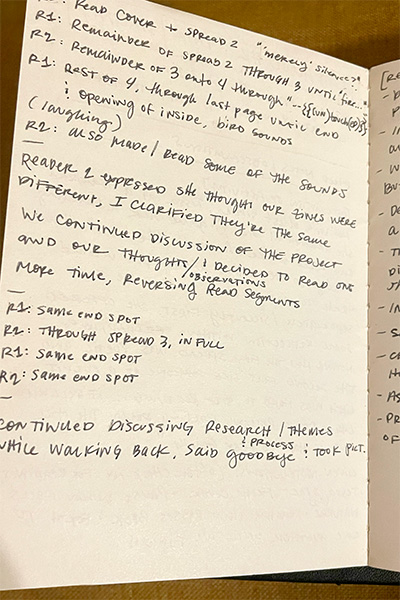 R2: READ COVER + SPREAD 2
R1: REMAINDER OF SPREAD 2 THROUGH 3 UNTIL "fire..."
"'memory' silence?"
R2: REMAINDER OF 3 ONTO 4 THROUGH "--{{(un)touch(ed)}}
R1: REST OF 4, THROUGH LAST PAGE UNTIL END
& OPENING OF INSIDE, BIRD SOUNDS
(laughing)
R2: ALSO MADE/READ SOME OF THE SOUNDS
—
READER 2 EXPRESSED SHE THOUGHT OUR ZINES WERE
DIFFERENT, I CLARIFIED THEY'RE THE SAME
WE CONTINUED DISCUSSION OF THE PROJECT
AND OUR THOUGHTS/OBSERVATIONS & DECIDED TO READ ONE
MORE TIME, REVERSING READ SEGMENTS
—
R1: SAME END SPOT
R2: THROUGH SPREAD 3, IN FULL
R1: SAME END SPOT
R2: SAME END SPOT
—
CONTINUED DISCUSSING RESEARCH/THEMES
& PROCESS
WHILE WALKING BACK, SAID GOODBYE & TOOK PICT.